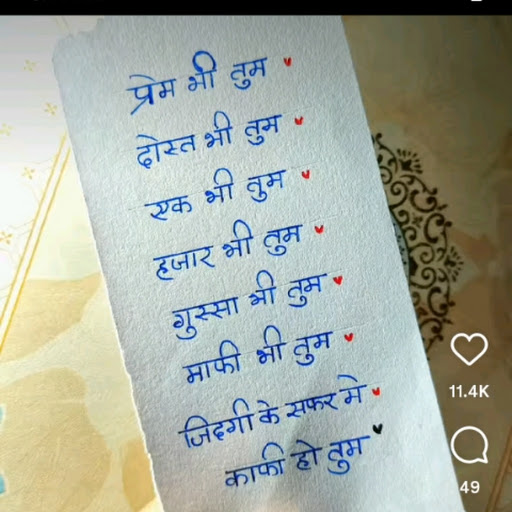 प्रेम भी तुम
दोस्त भी तुम
एक भी तुम
हजार भी तुम
गुस्सा भी तुम
माफी भी तुम
जिदगी के सफर मे
काफी हो तुम
11.4K
49